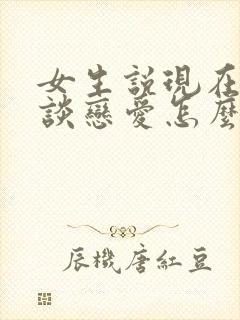 女生説現在
談戀愛怎麼
辰機唐紅豆